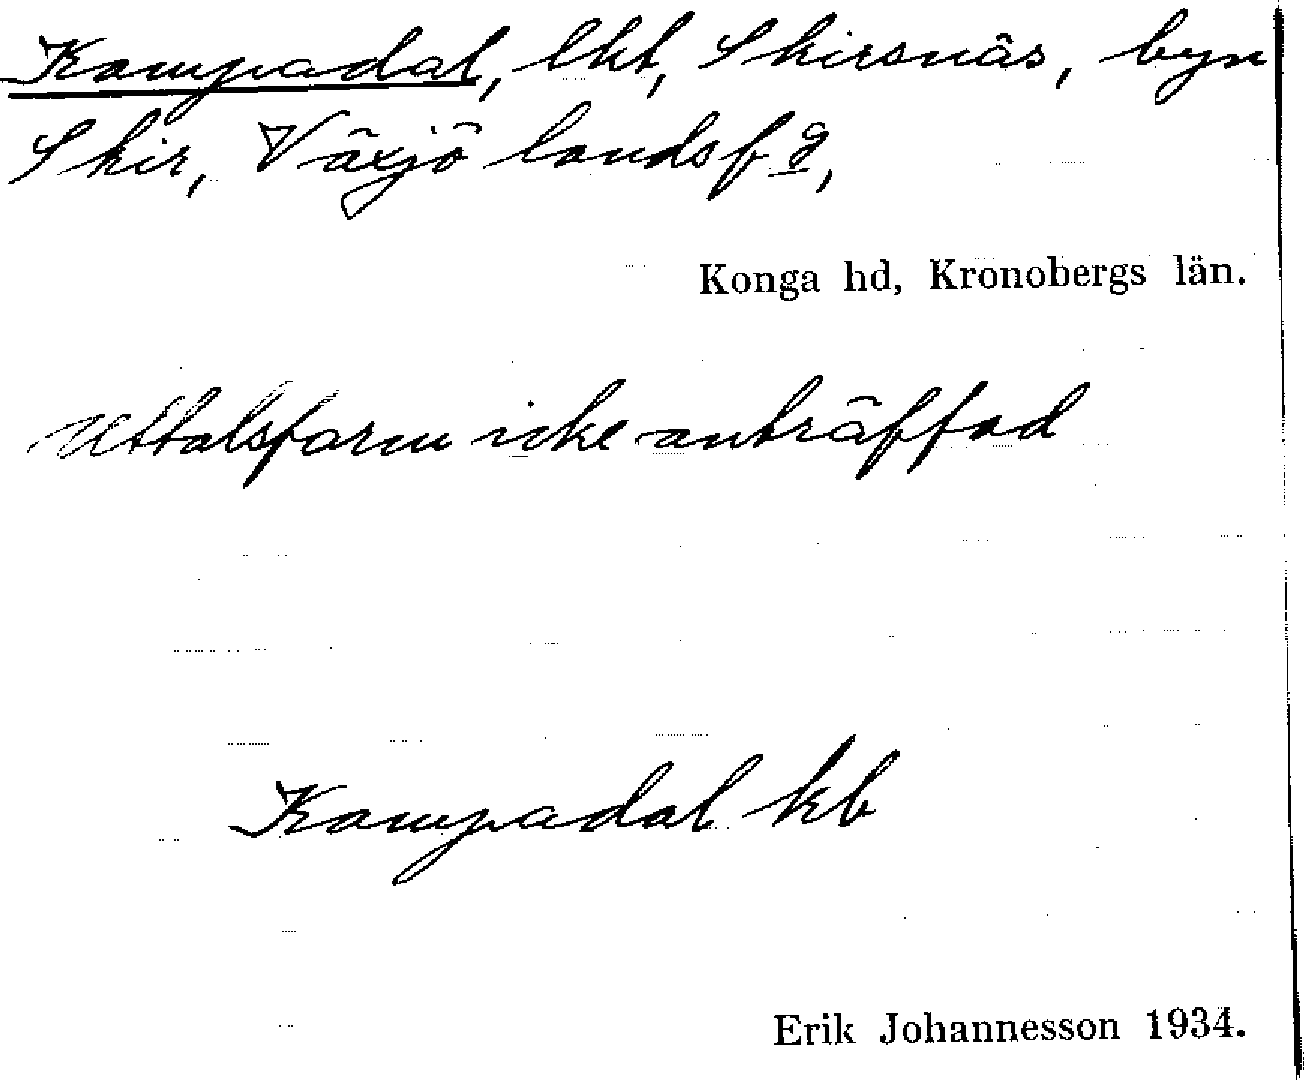 Kampadal, lht, Skirsnäs, byn
Skir, Växjö landsfg,
Konga hd, Kronobergs län.
Uttalsform icke anträffad
Kampadal kb
Erik Johannesson 1934.